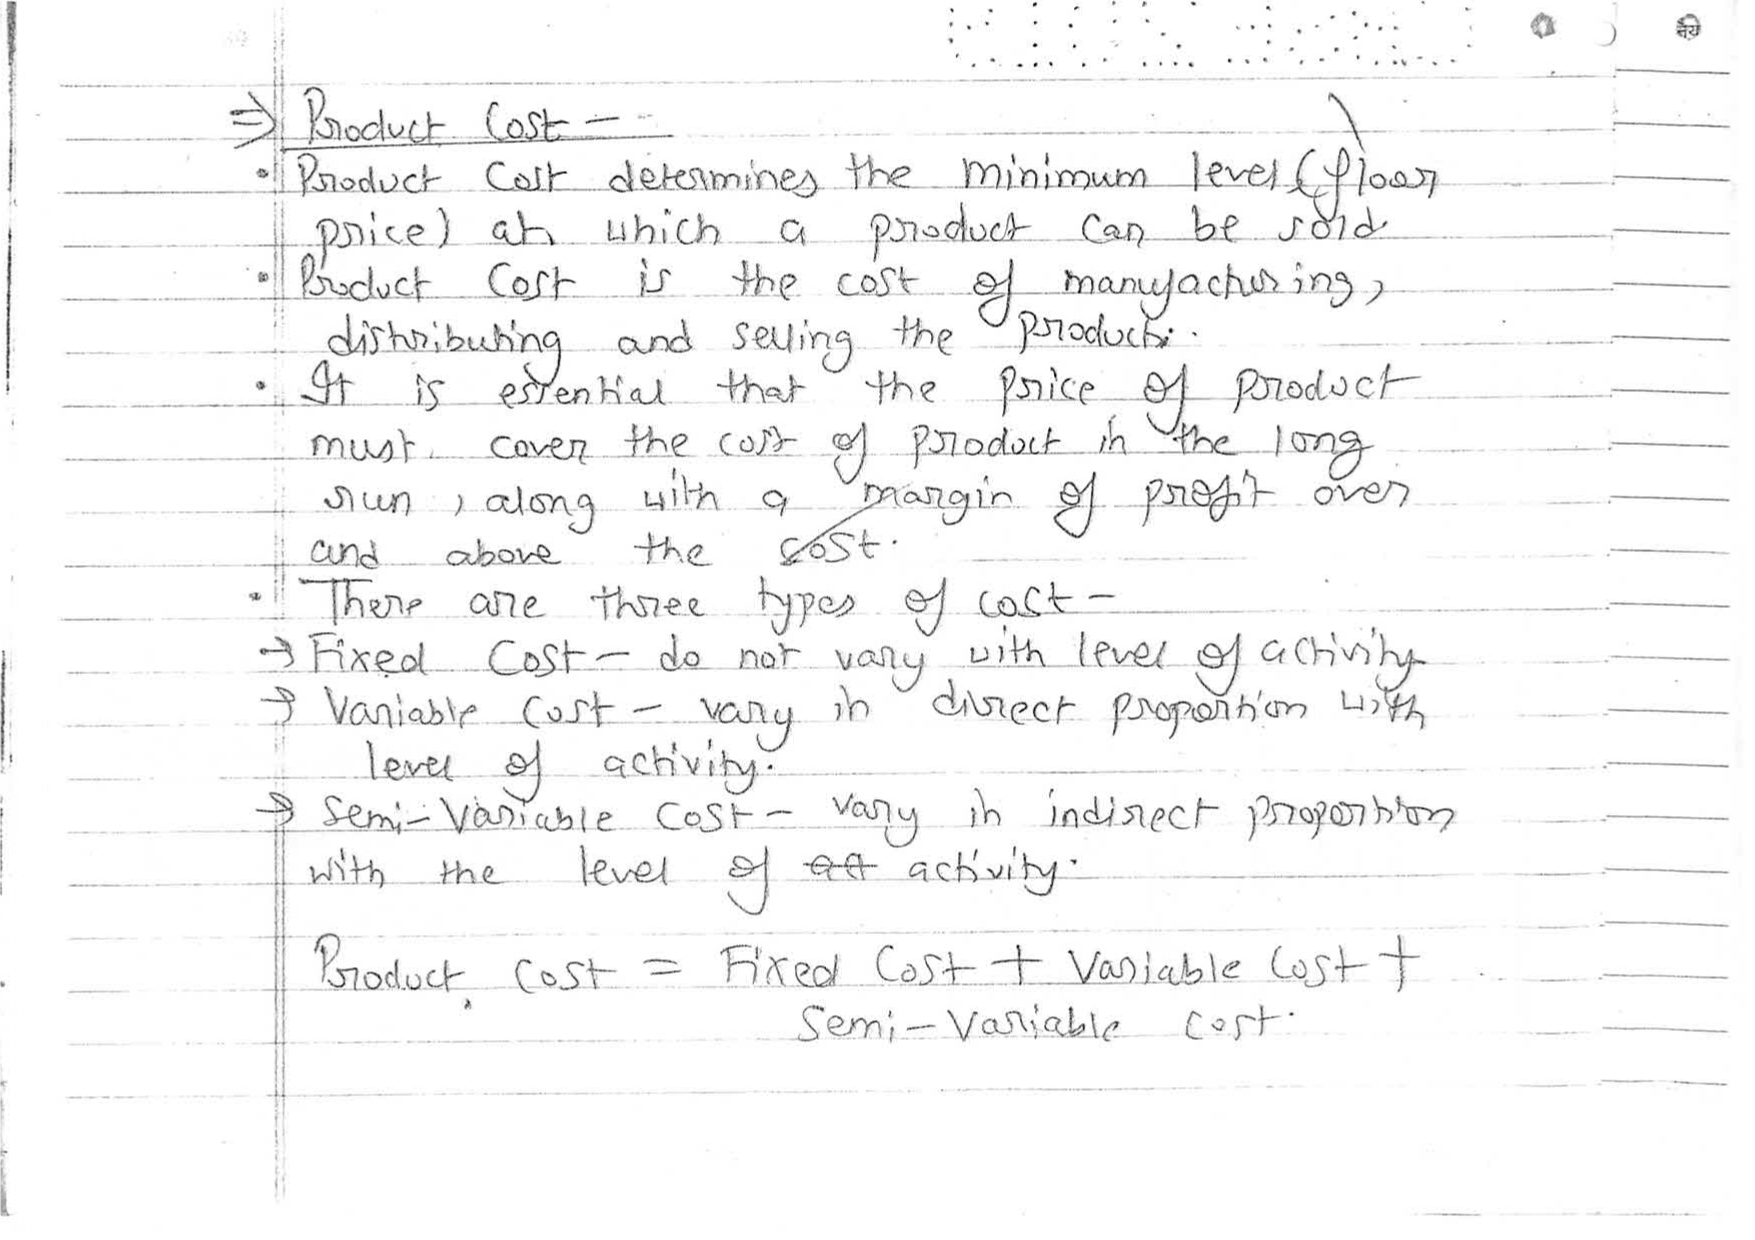 ⇒ Product Cost –
• Product Cost determines the minimum level (floor
price) at which a product can be sold
• Product Cost is the cost of manufacturing,
distributing and selling the product.
• It is essential that the price of product
must cover the cost of product in the long
run, along with a margin of profit over
and above the cost.
• There are three types of cost –
→ Fixed Cost – do not vary with level of activity
→ Variable Cost – vary in direct proportion with
level of activity.
→ Semi-Variable Cost – vary in indirect proportion
with the level of activity.
Product Cost = Fixed Cost + Variable Cost +
Semi-Variable Cost.